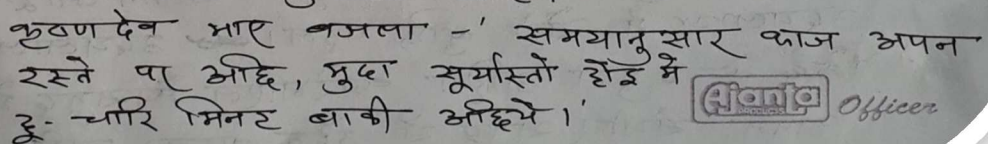 कृष्णदेव भाए बजला - 'समयानुसार काज अपन
रस्ते पर अछि, मुदा सूर्यास्तो होइ मे
दू-चारि मिनट बाकी अछिये।'
Ajanta Officer